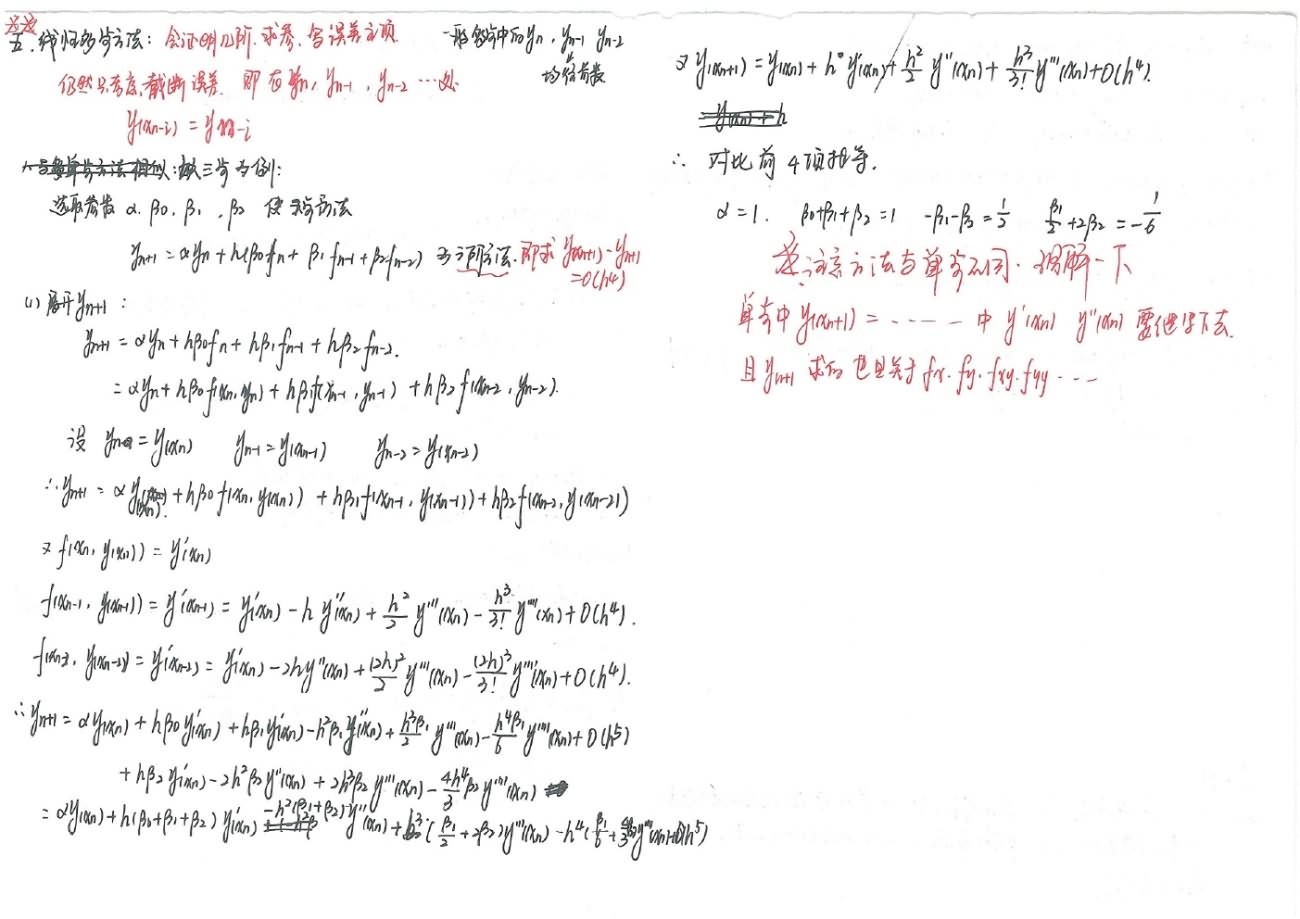 五. 线性多步方法: 会证明几阶. 求参. 写误差主项. 一般多步中的yn, yn-1 yn-2
均给有数
仍然只考虑截断误差. 即在yn, yn-1, yn-2 …处
y(xn-i) = yn-i
以三步为例:
选取参数 α. β0. β1, β2 使三步方法
yn+1 = αyn + h(β0fn + β1fn-1 + β2fn-2) 为三阶方法. 即求 y(xn+1) - yn+1
= O(h⁴)
(1) 展开yn+1:
yn+1 = αyn + hβ0fn + hβ1fn-1 + hβ2fn-2.
= αyn + hβ0f(xn, yn) + hβ1f(xn-1, yn-1) + hβ2f(xn-2, yn-2).
设 yn = y(xn) yn-1 = y(xn-1) yn-2 = y(xn-2)
∴ yn+1 = αy(xn) + hβ0f(xn, y(xn)) + hβ1f(xn-1, y(xn-1)) + hβ2f(xn-2, y(xn-2))
又 f(xn, y(xn)) = y'(xn)
f(xn-1, y(xn-1)) = y'(xn-1) = y'(xn) - h y''(xn) + h²/2 y'''(xn) - h³/3! y''''(xn) + O(h⁴).
f(xn-2, y(xn-2)) = y'(xn-2) = y'(xn) - 2hy''(xn) + (2h)²/2 y'''(xn) - (2h)³/3! y''''(xn) + O(h⁴).
∴ yn+1 = αy(xn) + hβ0y'(xn) + hβ1y'(xn) - h²β1y''(xn) + h³β1/2 y'''(xn) - h⁴β1/6 y''''(xn) + O(h⁵)
+ hβ2y'(xn) - 2h²β2y''(xn) + 2h³β2y'''(xn) - 4h⁴/3 β2y''''(xn)
= αy(xn) + h(β0+β1+β2) y'(xn) - h²(β1+β2) y''(xn) + h³(β1/2 + 2β2)y'''(xn) - h⁴(β1/6 + 4β2/3)y''''(xn) + O(h⁵)
又 y(xn+1) = y(xn) + h y'(xn) + h²/2 y''(xn) + h³/3! y'''(xn) + O(h⁴).
∴ 对比前4项相等.
α = 1. β0+β1+β2 = 1 -β1-β2 = 1/2 β1/2 + 2β2 = -1/6
注: 该方法与单步不同. 理解一下
单步中 y(xn+1) = …… 中 y'(xn) y''(xn) 要继续写下去.
且 yn+1 求的也是关于 fx. fy. fxy. fyy …